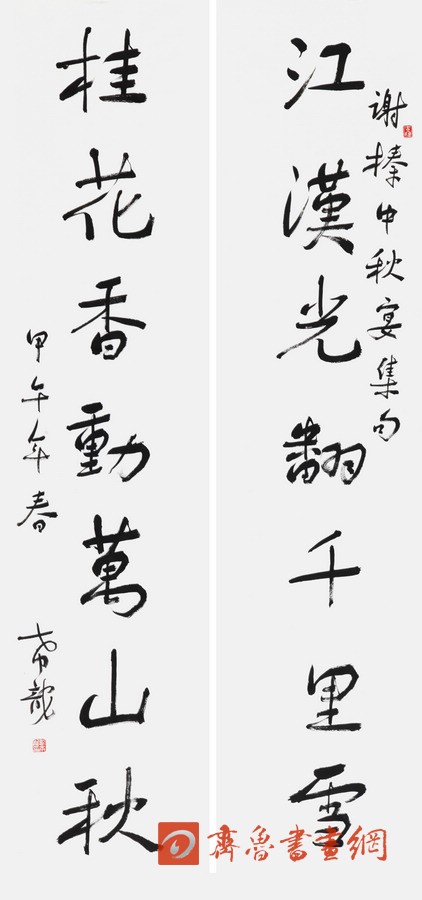 谢榛中秋宴集句
江漢光翻千里雪
桂花香動萬山秋
甲午年春
齊魯書畫網